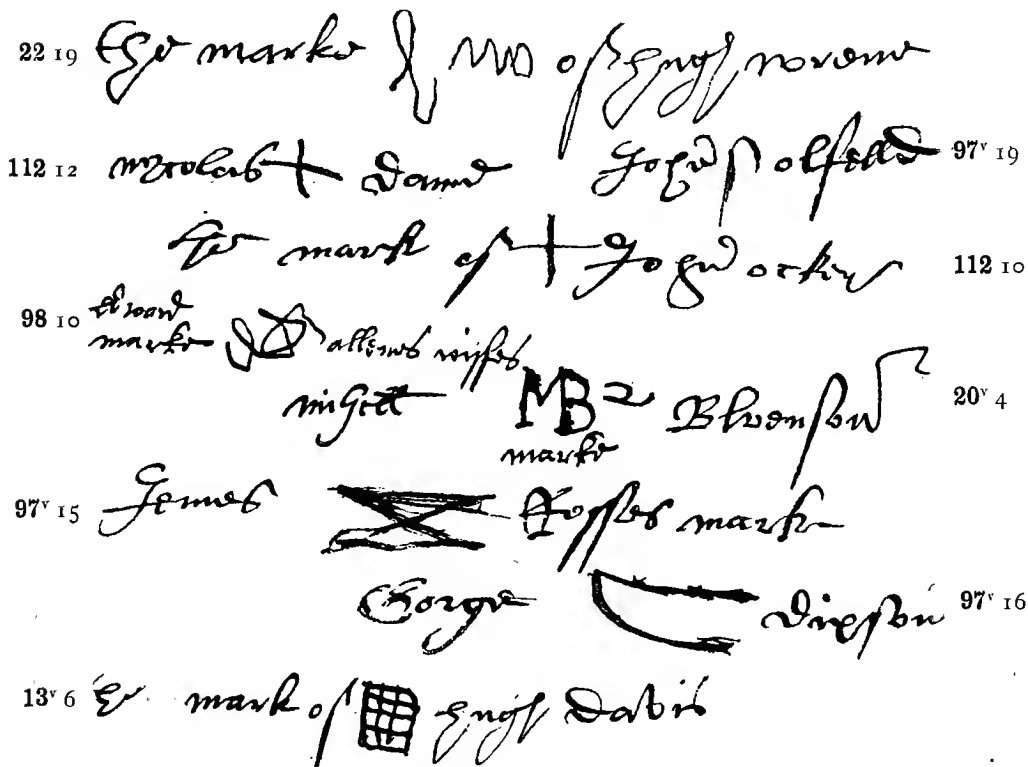 22 19 the marke of hugh wrene
112 12 nycolas + Dame John olfelld 97ᵛ 19
the mark of + John ockey 112 10
98 10 edward
marke allenes wiffes
mihell MB 2 Blvenson 20ᵛ 4
marke
97ᵛ 15 Jemes Rosses mark
Gorge Dixson 97ᵛ 16
13ᵛ 6 the mark of hugh Davis